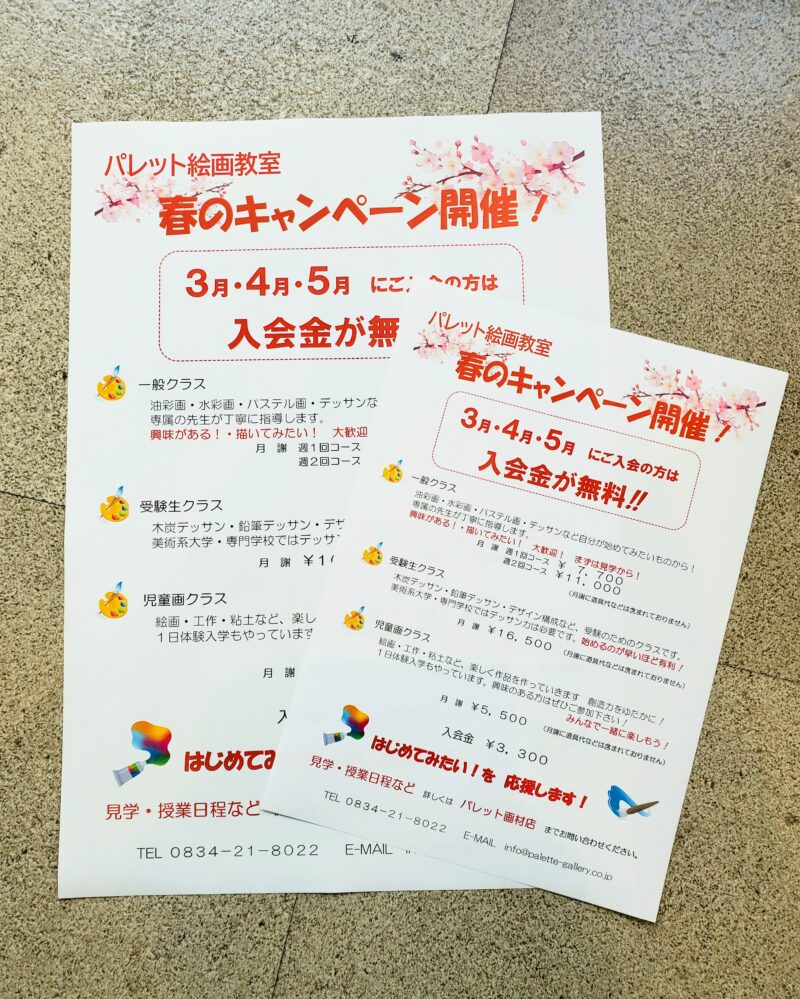 パレット絵画教室
春のキャンペーン開催！
3月・4月・5月 にご入会の方は
入会金が無
一般クラス
油彩画・水彩画・パステル画・デッサンな
専属の先生が丁寧に指導します。
興味がある！・描いてみたい！ 大歓迎
月 謝 週1回コース
週2回コース
受験生クラス
木炭デッサン・鉛筆デッサン・デザ
美術系大学・専門学校ではデッサン
月 謝 ￥1
児童画クラス
絵画・工作・粘土など、楽し
1日体験入学もやっています
月 謝
入
はじめてみ
見学・授業日程など
TEL 0834-21-8022 E-MAIL
パレット絵画教室
春のキャンペーン開催！
3月・4月・5月 にご入会の方は
入会金が無料!!
一般クラス
油彩画・水彩画・パステル画・デッサンなど自分が始めてみたいものから！
専属の先生が丁寧に指導します。
興味がある！・描いてみたい！ 大歓迎！ まずは見学から！
月 謝 週1回コース ￥ 7,700
週2回コース ￥11,000
（月謝に道具代などは含まれておりません）
受験生クラス
木炭デッサン・鉛筆デッサン・デザイン構成など、受験のためのクラスです。
美術系大学・専門学校ではデッサン力は必要です。始めるのが早いほど有利！
月 謝 ￥16,500 （月謝に道具代などは含まれておりません）
児童画クラス
絵画・工作・粘土など、楽しく作品を作っていきます 創造力をゆたかに！
1日体験入学もやっています。興味のある方はぜひご参加下さい！
みんなで一緒に楽しもう！
月 謝 ￥5,500 （月謝に道具代などは含まれておりません）
入会金 ￥3,300
はじめてみたい！を 応援します！
見学・授業日程など 詳しくは パレット画材店 までお問い合わせください。
TEL 0834-21-8022 E-MAIL info@palette-gallery.co.jp